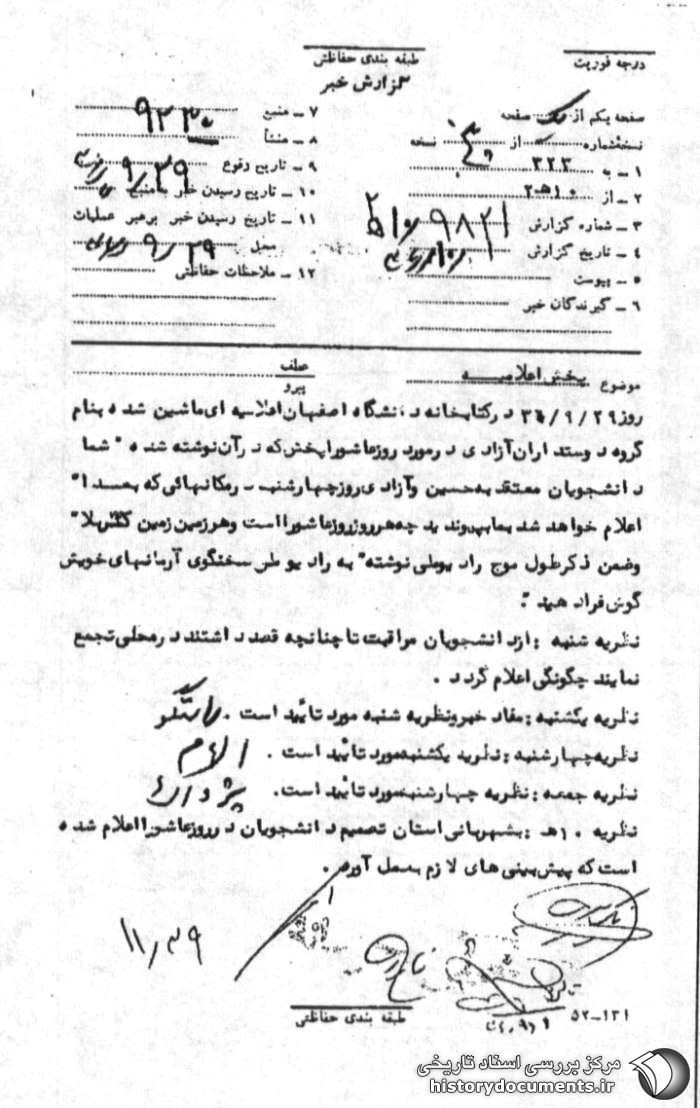 درجه فوریت
طبقه بندی حفاظتی
گزارش خبر
صفحه یکم از یک صفحه
نسخه‌شماره از نسخه
۱ – به ۳۲۲
۲ – از ۱۰ه۲
۳ – شماره گزارش ۹۸۲۱
۴ – تاریخ گزارش
۵ – پیوست
۶ – گیرندگان خبر
۷ – منبع ۹۲۳۰
۸ – منشأ
۹ – تاریخ وقوع ۹/۲۹
۱۰ – تاریخ رسیدن خبر بمنبع
۱۱ – تاریخ رسیدن خبر برهبر عملیات
محل ۹/۲۹
۱۲ – ملاحظات حفاظتی
موضوع پخش اعلامیه
عطف
پیرو
روز ۳۶/۹/۲۹ در کتابخانه دانشگاه اصفهان اعلامیه ای ماشین شده بنام
گروه دوستداران آزادی در مورد روز عاشورا پخش که در آن نوشته شده " شما
دانشجویان معتقد به حسین و آزادی روز چهارشنبه در مکانهائی که بعدا"
اعلام خواهد شد بما بپیوندید چه هر روز روز عاشورا است و هر زمین زمین کربلا"
وضمن ذکر طول موج رادیوئی نوشته " به رادیو سخنگوی آرمانهای خویش
گوش فرا دهید ".
نظریه شنبه : از دانشجویان مراقبت تا چنانچه قصد داشتند در محلی تجمع
نمایند چگونگی اعلام گردد .
نظریه یکشنبه : مفاد خبر و نظریه شنبه مورد تأیید است .
نظریه چهارشنبه : نظریه یکشنبه مورد تأیید است .
نظریه جمعه : نظریه چهارشنبه مورد تأیید است .
نظریه ۱۰ه : بشهربانی استان تصمیم دانشجویان در روز عاشورا اعلام شده
است که پیش بینی های لازم بعمل آورد .
۱۱/۲۹
۵۲-۱۳۱
طبقه بندی حفاظتی
مرکز بررسی اسناد تاریخی
historydocuments.ir